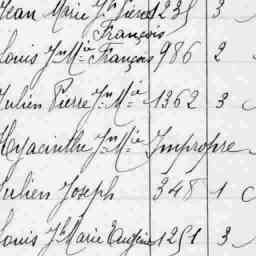 Jean Marie Jh 1235 3
François
Louis Jn Mie François 986 2
Julien Pierre Jn Mie 1362 3
Hyacinthe Jn Mie Impropre
Julien Joseph 348 1
Louis Jh Marie Eugène 1251 3